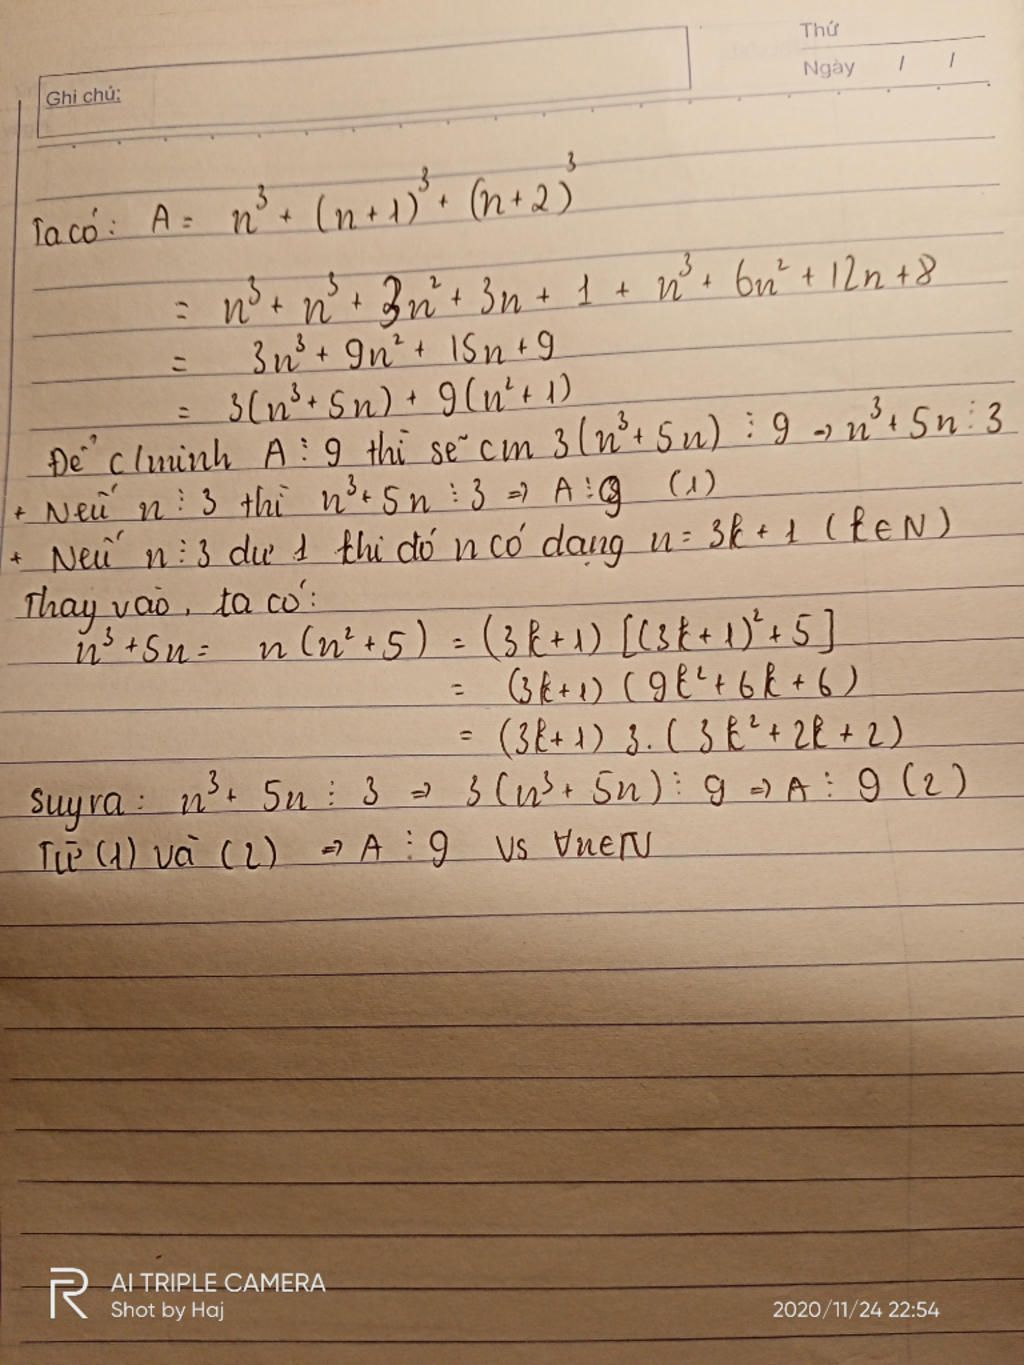 Thứ
Ngày / /
Ghi chú:
Ta có: A = n³ + (n+1)³ + (n+2)³
= n³ + n³ + 3n² + 3n + 1 + n³ + 6n² + 12n + 8
= 3n³ + 9n² + 15n + 9
= 3(n³ + 5n) + 9(n² + 1)
Để c/minh A ⋮ 9 thì sẽ cm 3(n³ + 5n) ⋮ 9 → n³ + 5n ⋮ 3
+ Nếu n ⋮ 3 thì n³ + 5n ⋮ 3 ⇒ A ⋮ 9 (1)
+ Nếu n ⋮ 3 dư 1 thì đó n có dạng n = 3k + 1 (k ∈ N)
Thay vào, ta có:
n³ + 5n = n(n² + 5) = (3k+1) [(3k+1)² + 5]
= (3k+1) (9k² + 6k + 6)
= (3k+1) 3. (3k² + 2k + 2)
Suy ra: n³ + 5n ⋮ 3 ⇒ 3(n³ + 5n) ⋮ 9 ⇒ A ⋮ 9 (2)
Từ (1) và (2) ⇒ A ⋮ 9 vs ∀n∈N
AI TRIPLE CAMERA
Shot by Haj
2020/11/24 22:54